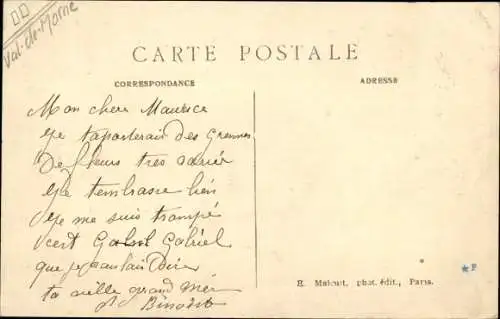 Val-de-Marne
CARTE POSTALE
CORRESPONDANCE
ADRESSE
Mon chere Maurice
Je taporterais des Grennes
De fleurs tres varié
Je tembrasse bien
Je me suis trompé
cert Gabriel
que je voulais Dire
ta vielle grand mér
Benoist
E. Malcuit, phot. édit., Paris.